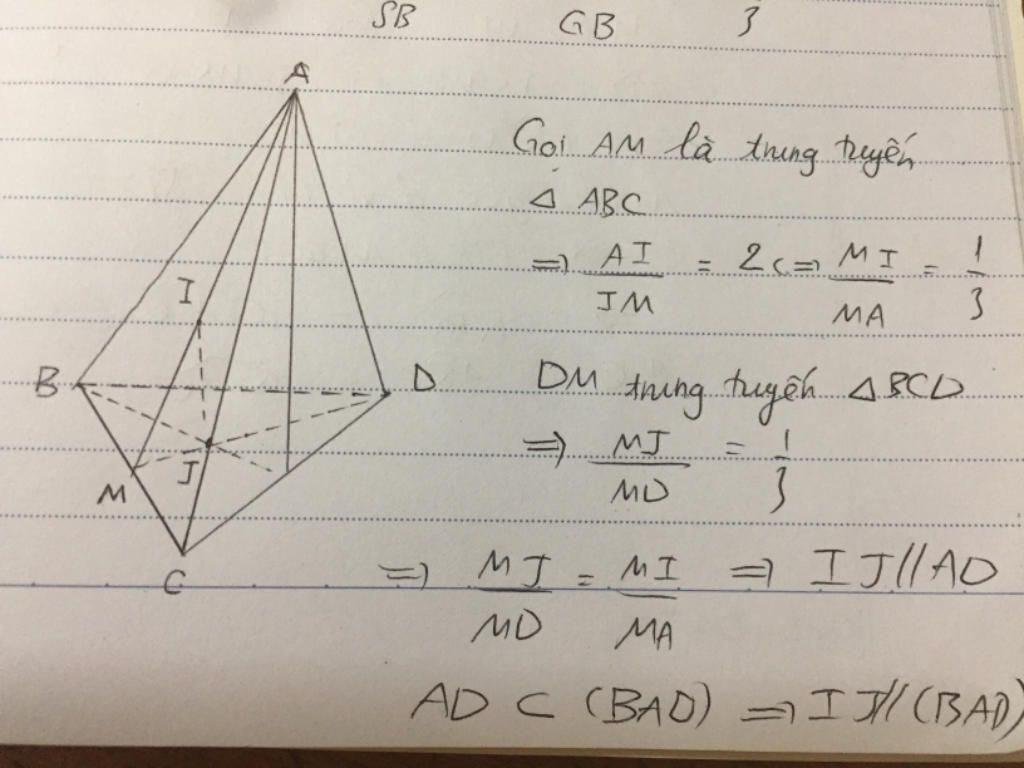 SB GB 3
A
Gọi AM là trung tuyến
△ ABC
⇒ AI/IM = 2 ⇔ MI/MA = 1/3
I
B D
DM trung tuyến △BCD
⇒ MJ/MD = 1/3
M J
C
⇒ MJ/MD = MI/MA ⇒ IJ//AD
AD ⊂ (BAD) ⇒ IJ//(BAD)